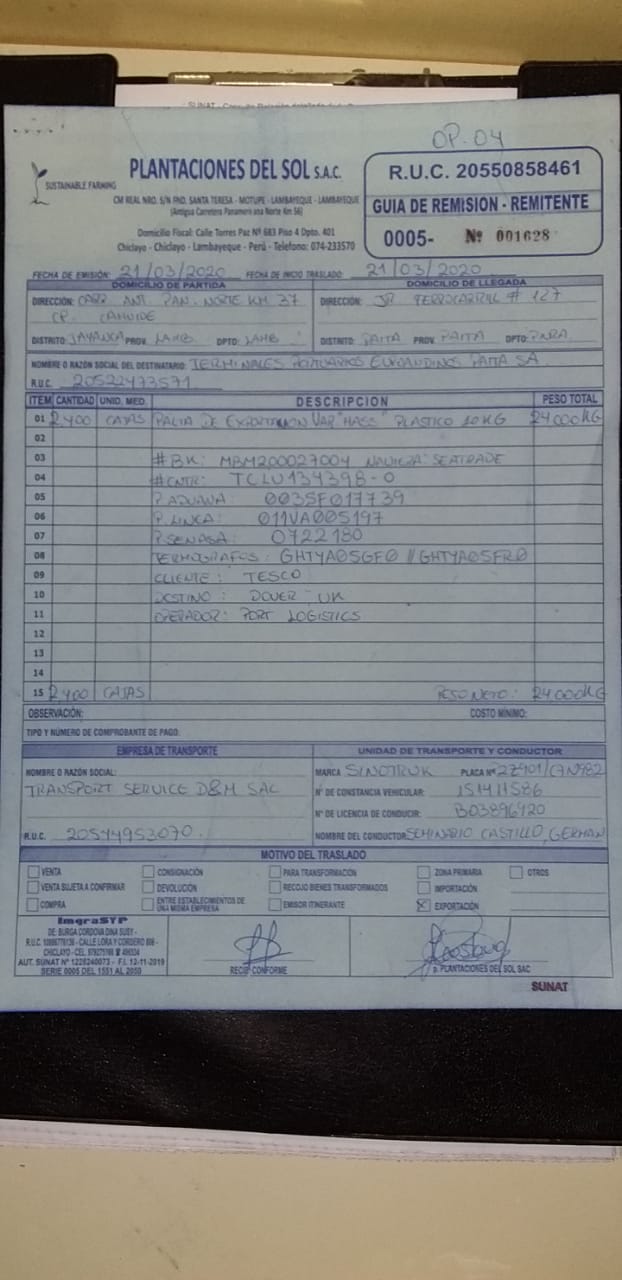 OP. 04
PLANTACIONES DEL SOL S.A.C.
SUSTAINABLE FARMING
CM REAL NRO. S/N FND. SANTA TERESA - MOTUPE - LAMBAYEQUE - LAMBAYEQUE
(Antigua Carretera Panamericana Norte Km 56)
Domicilio Fiscal: Calle Torres Paz Nº 683 Piso 4 Dpto. 401
Chiclayo - Chiclayo - Lambayeque - Perú - Telefono: 074-233570
R.U.C. 20550858461
GUIA DE REMISION - REMITENTE
0005- Nº 001628
FECHA DE EMISIÓN: 21/03/2020 FECHA DE INICIO TRASLADO: 21/03/2020
DOMICILIO DE PARTIDA DOMICILIO DE LLEGADA
DIRECCIÓN: CARR. ANT. PAN. NORTE KM 37 DIRECCIÓN: JR FERROCARRIL # 127
CP.
DISTRITO: JAYANCA PROV. LAMB. DPTO: LAMB DISTRITO: PAITA PROV. PAITA DPTO:
NOMBRE O RAZÓN SOCIAL DEL DESTINATARIO: TERMINALES PORTUARIOS EUROANDINOS PAITA SA
R.U.C. 20522473571
ITEM CANTIDAD UNID. MED. DESCRIPCION PESO TOTAL
01 2,400 CAJAS PALTA DE EXPORTACION VAR "HASS" PLASTICO 10KG 24,000KG
02
03 #BK: MBM200027004 NAVIERA: SEATRADE
04 #CNTR: TCLU134398-0
05 P. ADUANA: 0035F017739
06 P. LINEA: 011VA005197
07 P. SENASA: 0722180
08 TERMOGRAFOS: GHTYA05GF0 // GHTYA05FR0
09 CLIENTE: TESCO
10 DESTINO: DOVER - UK
11 OPERADOR: PORT LOGISTICS
12
13
14
15 2,400 CAJAS PESO NETO: 24,000KG
OBSERVACIÓN: COSTO MÍNIMO:
TIPO Y NÚMERO DE COMPROBANTE DE PAGO:
EMPRESA DE TRANSPORTE UNIDAD DE TRANSPORTE Y CONDUCTOR
NOMBRE O RAZÓN SOCIAL: MARCA SINOTRUK PLACA Nº
TRANSPORT SERVICE D&M SAC Nº DE CONSTANCIA VEHICULAR: 151411586
Nº DE LICENCIA DE CONDUCIR: B03896420
R.U.C. 20544953070. NOMBRE DEL CONDUCTOR: SEMINARIO CASTILLO, GERMAN
MOTIVO DEL TRASLADO
VENTA CONSIGNACIÓN PARA TRANSFORMACIÓN ZONA PRIMARIA OTROS
VENTA SUJETA A CONFIRMAR DEVOLUCIÓN RECOJO BIENES TRANSFORMADOS IMPORTACIÓN
COMPRA ENTRE ESTABLECIMIENTOS DE UNA MISMA EMPRESA EMISOR ITINERANTE X EXPORTACIÓN
ImgraSYP
DE: BURGA CORDOVA DINA SUSY -
R.U.C. - CALLE LORA Y CORDERO -
CHICLAYO - CEL.
AUT. SUNAT Nº 1226240073 - F.I. 12-11-2019
SERIE 0005 DEL 1551 AL 2050
RECIBI CONFORME
p. PLANTACIONES DEL SOL SAC
SUNAT